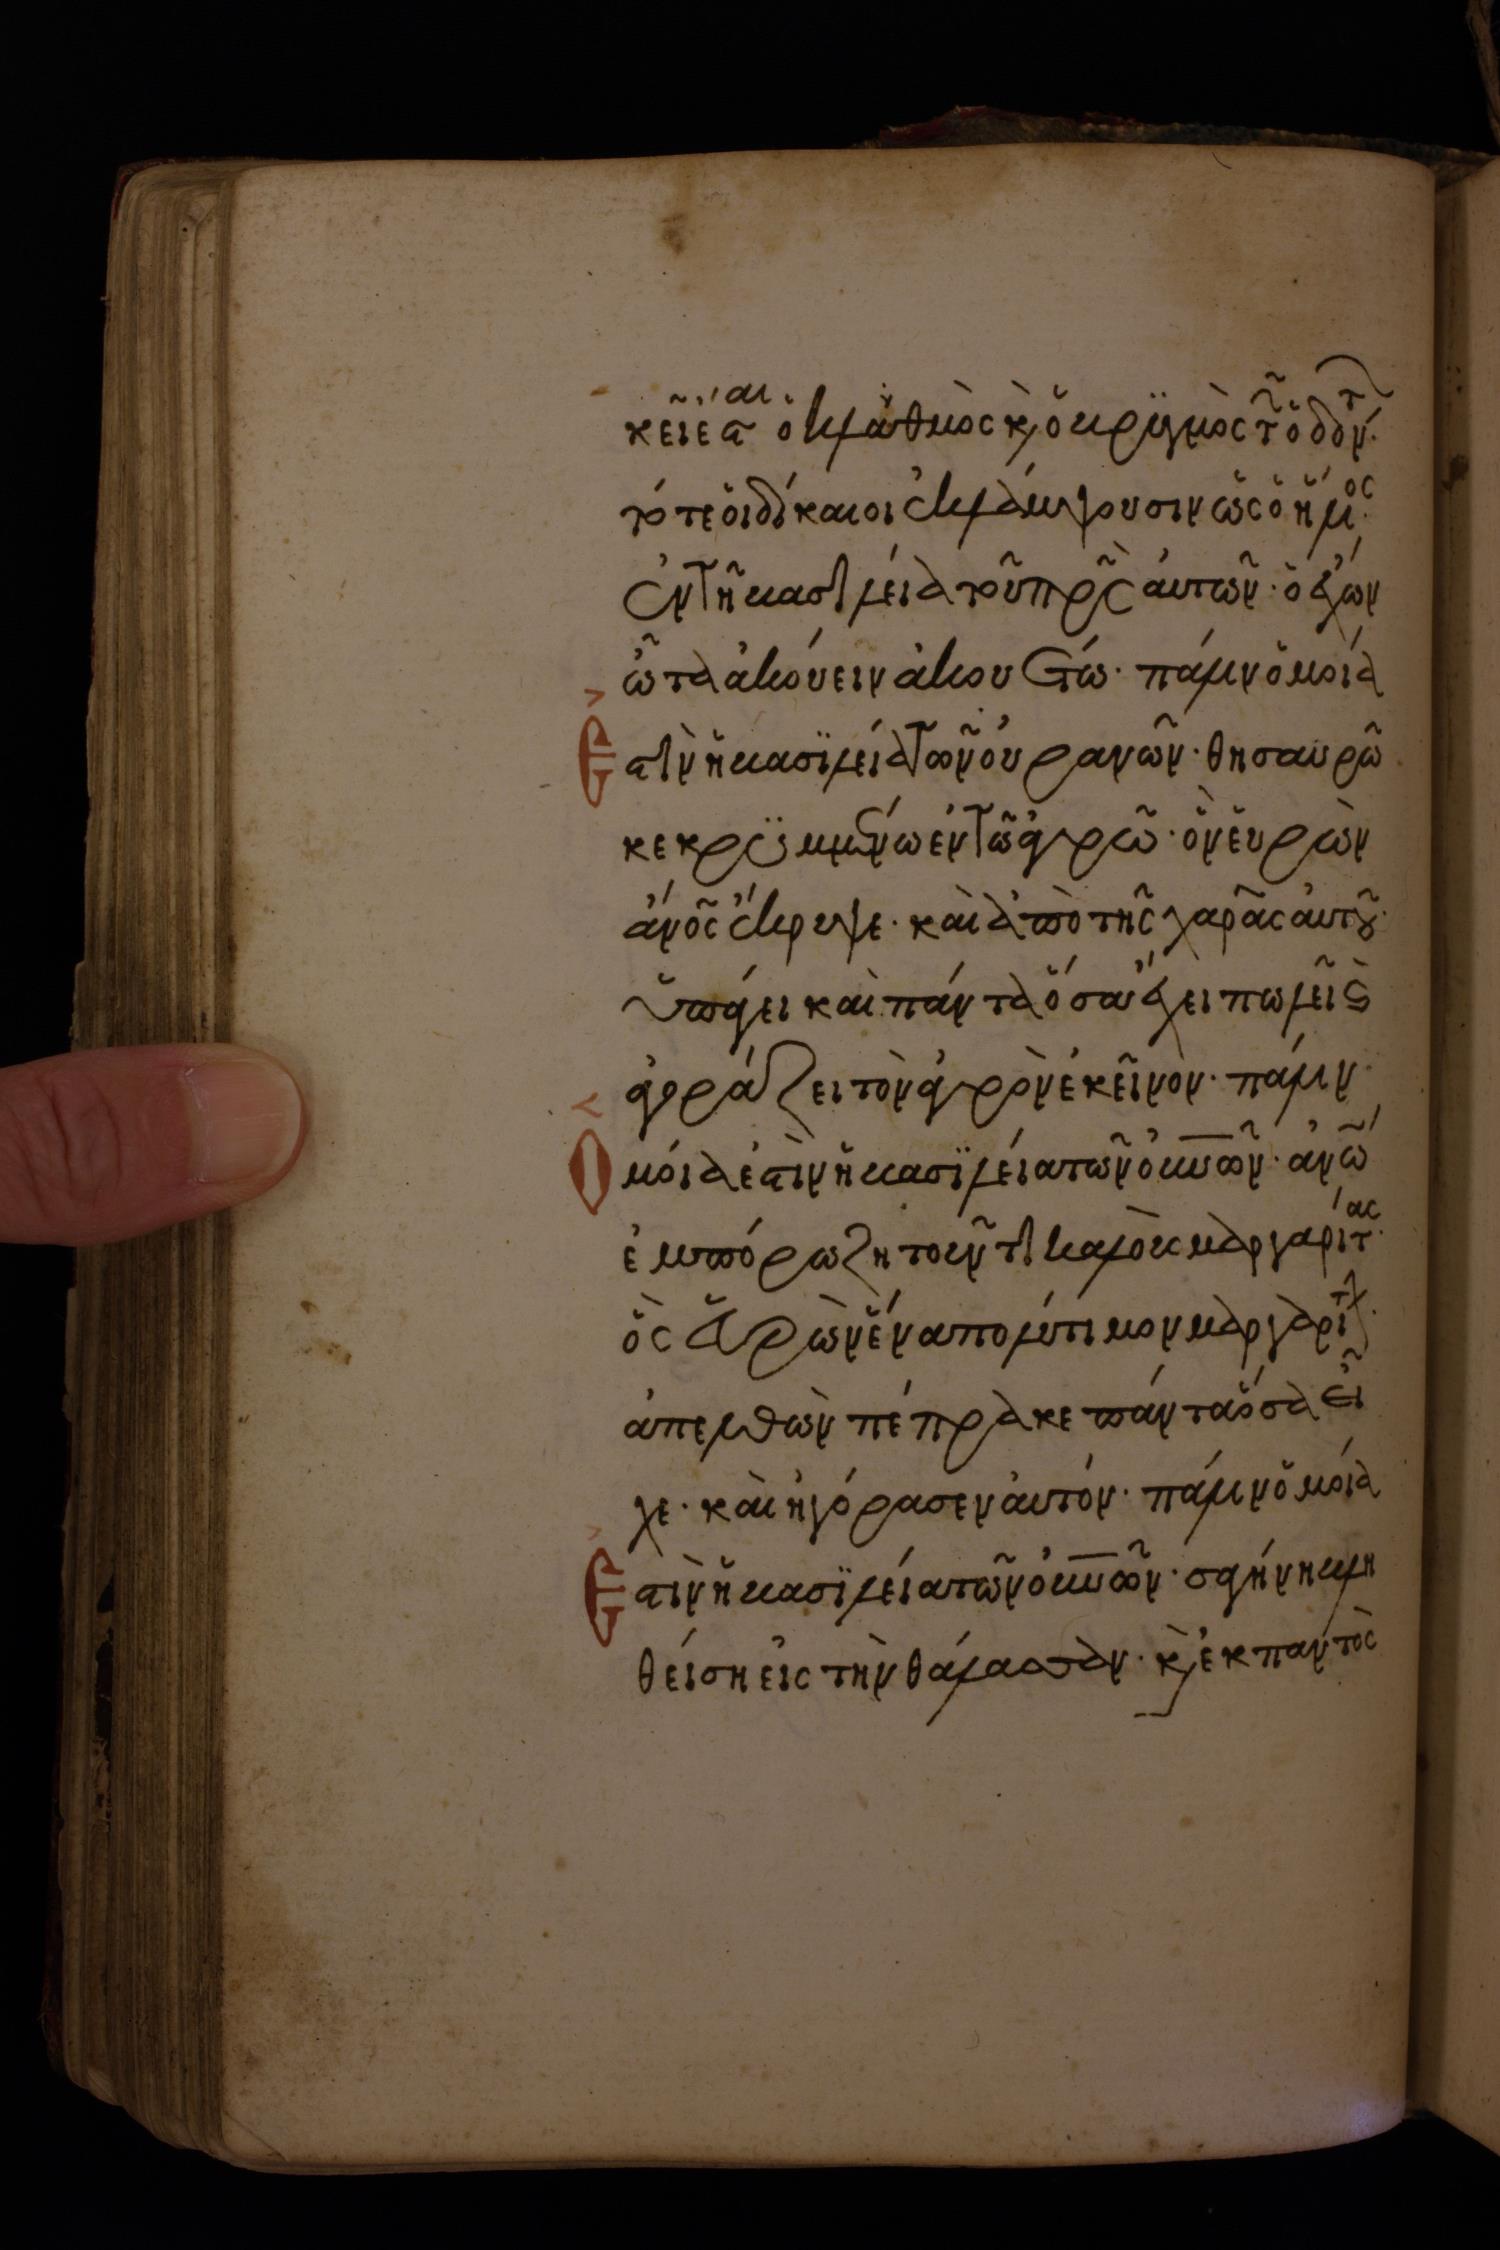 κεῖ ἔσται ὁ κλαθμὸς κ̀ ὁ βρϋγμὸς τῶν ὀδόντ
τότε ὁι δίκαιοι ἐκλάμψουσιν ὡς ὁ ἥλιος
ἐν τῆ βασιλείᾳ τοῦ πρ̅ς ἀυτῶν· ὁ ἔχων
ὦτα ἀκούειν ἀκουέτω· πάλιν ὁμοία
Ἐστὶν ἡ βασϊλεία τῶν οὐρανῶν· θησαυρῶ
κεκρϋμμένω ἐν τῶ ἀγρῶ· ὃν εὑρὼν
ἄνο̅ς ἔκρυψε· καὶ ἀπὸ τῆς χαρᾶς ἀυτοῦ
ὑπάγει καὶ πάντα ὅσα ἔχει πωλεῖ ϛ̀
ἀγοράζει τὸν ἀγρὸν ἐκεῖνον· πάλιν
Ὁμοία ἐστὶν ἡ βασϊλεία τῶν ὀυ̅νῶν· ἀν̅ω
ἐμπόρω ζητοῦντι καλοὺς μαργαρίτας·
ὃς εὑρὼν ἕνα πολύτιμον μαργαρίτην·
ἀπελθὼν πέπρακε πάντα ὅσα εἶ
χε· καὶ ἠγόρασεν ἀυτόν· πάλιν ὁμοία
Ἐστὶν ἡ βασϊλεία τῶν ὀυ̅νῶν· σαγήνη βλη
θείση εἰς τὴν θάλασσαν· κ̀ ἐκ παντὸς